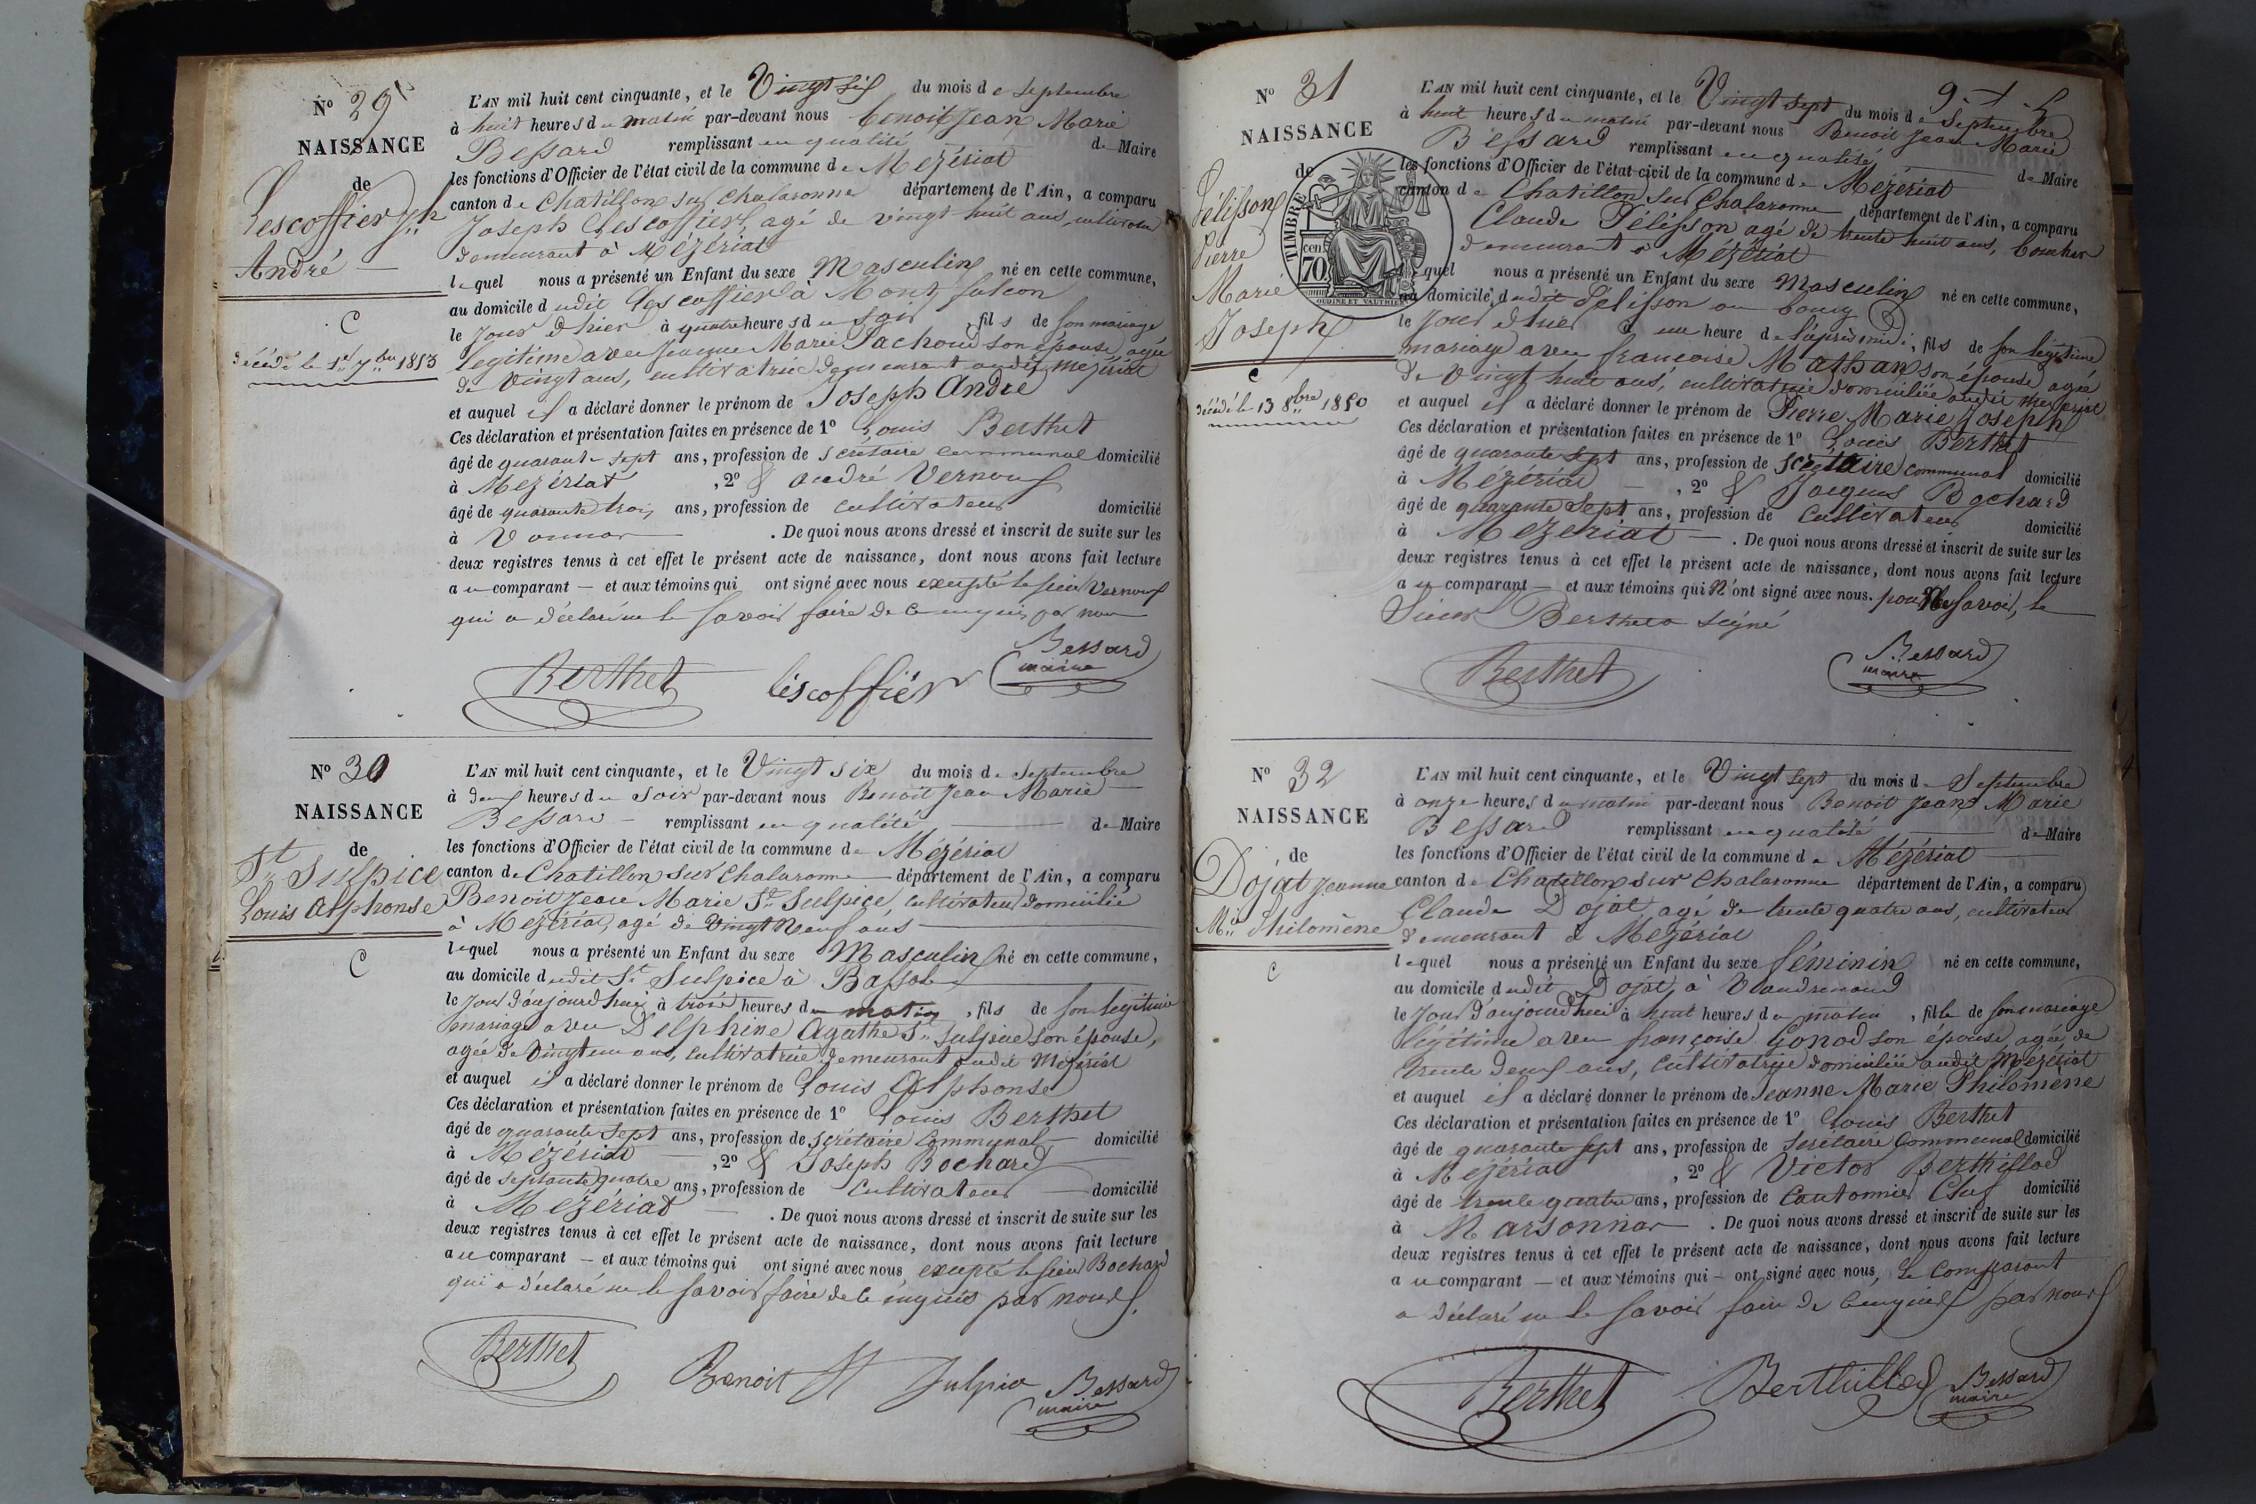 N° 29
NAISSANCE
de
Lescoffier Jph
André
C
décédé le 1er 7bre 1853
L'AN mil huit cent cinquante, et le Vingt six du mois de Septembre
à huit heures du matin par-devant nous Benoit Jean Marie
Bessard remplissant en qualité de Maire
les fonctions d'Officier de l'état civil de la commune de Mézériat
canton de Chatillon sur Chalaronne département de l'Ain, a comparu
Joseph Lescoffier, agé de vingt huit ans, cultivateur
demeurant à Mézériat
lequel nous a présenté un Enfant du sexe Masculin né en cette commune,
au domicile dudit Lescoffier à Mont falcon
le Jour d'hier à quatre heures du soir, fils de son mariage
légitime avec Jeanne Marie Pachoud son épouse, agée
de Vingt ans, cultivatrice demeurant audit Mézériat
et auquel il a déclaré donner le prénom de Joseph André
Ces déclaration et présentation faites en présence de 1° Louis Berthet
âgé de quarante sept ans, profession de Secrétaire communal domicilié
à Mézériat, 2° & andré Vernoux
âgé de quarante trois ans, profession de cultivateur domicilié
à Vonnas. De quoi nous avons dressé et inscrit de suite sur les
deux registres tenus à cet effet le présent acte de naissance, dont nous avons fait lecture
au comparant — et aux témoins qui ont signé avec nous excepté le sieur Vernoux
qui a déclaré ne le savoir faire de ce enquis par nous
Berthet Léscoffiér Bessard
maire
N° 30
NAISSANCE
de
St Sulpice
Louis Alphonse
C
L'AN mil huit cent cinquante, et le Vingt six du mois de Septembre
à deux heures du Soir par-devant nous Benoit Jean Marie
Bessard remplissant en qualité de Maire
les fonctions d'Officier de l'état civil de la commune de Mézériat
canton de Chatillon sur Chalaronne département de l'Ain, a comparu
Benoit Jean Marie St Sulpice, cultivateur domicilié
à Mézériat, agé de Vingt Neuf ans
lequel nous a présenté un Enfant du sexe Masculin né en cette commune,
au domicile dudit St Sulpice à
le Jour d'aujourd'hui à trois heures du matin, fils de son légitime
mariage avec Delphine Agathe St Sulpice son épouse,
agée de Vingt un ans, cultivatrice demeurant audit Mézériat
et auquel il a déclaré donner le prénom de Louis Alphonse
Ces déclaration et présentation faites en présence de 1° Louis Berthet
âgé de quarante sept ans, profession de Secrétaire Communal domicilié
à Mézériat, 2° & Joseph Bochard
âgé de septante quatre ans, profession de Cultivateur domicilié
à Mézériat. De quoi nous avons dressé et inscrit de suite sur les
deux registres tenus à cet effet le présent acte de naissance, dont nous avons fait lecture
au comparant — et aux témoins qui ont signé avec nous excepté le sieur Bochard
qui a déclaré ne le savoir faire de ce enquis par nous.
Berthet Benoit St Sulpice Bessard
maire
N° 31
NAISSANCE
de
Pélisson
Pierre
Marie
Joseph
C
décédé le 13 8bre 1850
TIMBRE
cen
70
OUDINE ET VAUTHIER
L'AN mil huit cent cinquante, et le Vingt sept du mois de Septembre
à huit heures du matin par-devant nous Benoit Jean Marie
Bessard remplissant en qualité de Maire
les fonctions d'Officier de l'état civil de la commune de Mézériat
canton de Chatillon sur Chalaronne département de l'Ain, a comparu
Claude Pélisson agé de trente huit ans, boucher
demeurant à Mézériat
lequel nous a présenté un Enfant du sexe Masculin né en cette commune,
au domicile dudit Pélisson au bourg
le Jour d'hier à une heure de l'après midi, fils de son légitime
mariage avec françoise Mathan son épouse, agée
de Vingt huit ans, cultivatrice domiciliée audit Mézériat
et auquel il a déclaré donner le prénom de Pierre Marie Joseph
Ces déclaration et présentation faites en présence de 1° Louis Berthet
âgé de quarante sept ans, profession de secrétaire communal domicilié
à Mézériat — , 2° & Jacques Bochard
âgé de quarante sept ans, profession de Cultivateur domicilié
à Mézériat — . De quoi nous avons dressé et inscrit de suite sur les
deux registres tenus à cet effet le présent acte de naissance, dont nous avons fait lecture
au comparant — et aux témoins qui N'ont signé avec nous. pour Ne savoir, le
Sieur Berthet a signé
Berthet Bessard
maire
N° 32
NAISSANCE
de
Dojat Jeanne
Mie Philomène
C
L'AN mil huit cent cinquante, et le Vingt sept du mois de Septembre
à onze heures du matin par-devant nous Benoit Jean Marie
Bessard remplissant en qualité de Maire
les fonctions d'Officier de l'état civil de la commune de Mézériat
canton de Chatillon sur Chalaronne département de l'Ain, a comparu
Claude Dojat agé de trente quatre ans, cultivateur
demeurant à Mézériat
lequel nous a présenté un Enfant du sexe féminin né en cette commune,
au domicile dudit Dojat, à
le Jour d'aujourd'hui à huit heures du matin, fille de son mariage
légitime avec françoise Gonod son épouse, agée de
trente deux ans, cultivatrice domiciliée audit Mézériat
et auquel il a déclaré donner le prénom de Jeanne Marie Philomène
Ces déclaration et présentation faites en présence de 1° Louis Berthet
âgé de quarante sept ans, profession de Secrétaire Communal domicilié
à Mézériat, 2° & Victor Berthillod
âgé de trente quatre ans, profession de Cantonnier Chef domicilié
à Marsonnas — . De quoi nous avons dressé et inscrit de suite sur les
deux registres tenus à cet effet le présent acte de naissance, dont nous avons fait lecture
au comparant — et aux témoins qui — ont signé avec nous, Le Comparant
a déclaré ne le savoir faire de ce enquis par nous
Berthet Berthillod Bessard
maire